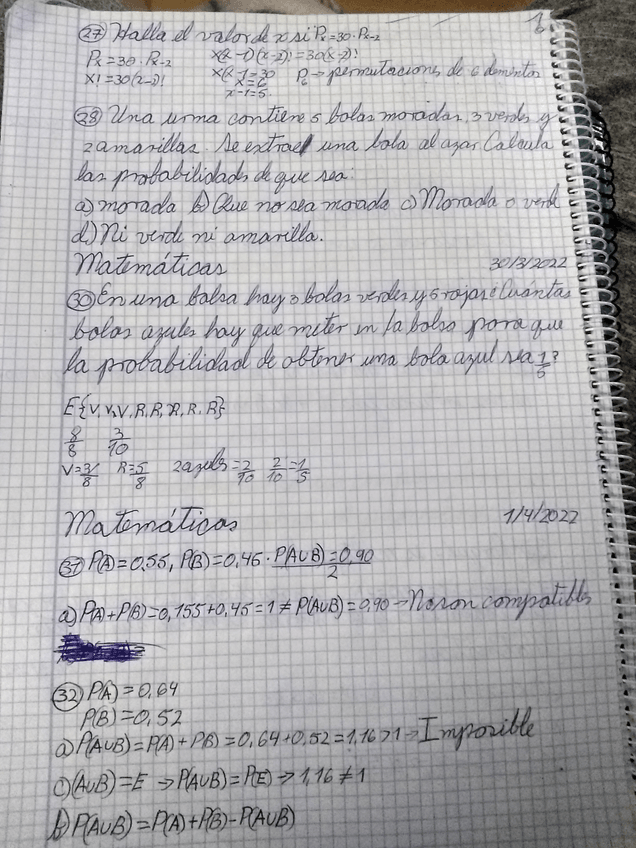 27 Halla el valor de x si Px=30·Px-2
Px=30·Px-2 x(x-1)(x-2)!=30(x-2)!
x!=30(x-2)! x(x-1=30 P6→permutaciones de 6 elementos
x=6
x-1=5
28 Una urna contiene 5 bolas moradas, 3 verdes y
2 amarillas. Se extrae una bola al azar Calcula
las probabilidads de que sea:
a) morada b) Que no sea morada c) Morada o verde
d) Ni verde ni amarilla.
Matemáticas 30/3/2022
30 En una balsa hay 3 bolas verdes y 5 rojas ¿Cuantas
bolas azules hay que meter en la bolsa para que
la probabilidad de obtener una bola azul sea 1/5?
E{V,V,V,R,R,R,R,R}
8/8 3/10
V=3/8 R=5/8 2 azuls=2/10 2/10=1/5
Matemáticas 1/4/2022
31 P(A)=0,55, P(B)=0,45· P(AUB)=0,90
2
a) P(A)+P(B)=0,155+0,45=1≠P(AUB)=0,90→No son compatibles
32 P(A)=0,64
P(B)=0,52
a) P(AUB)=P(A)+P(B)=0,64+0,52=1,16>1→Imposible
c) (AUB)=E →P(AUB)=P(E)→1,16≠1
b) P(AUB)=P(A)+P(B)-P(AUB)